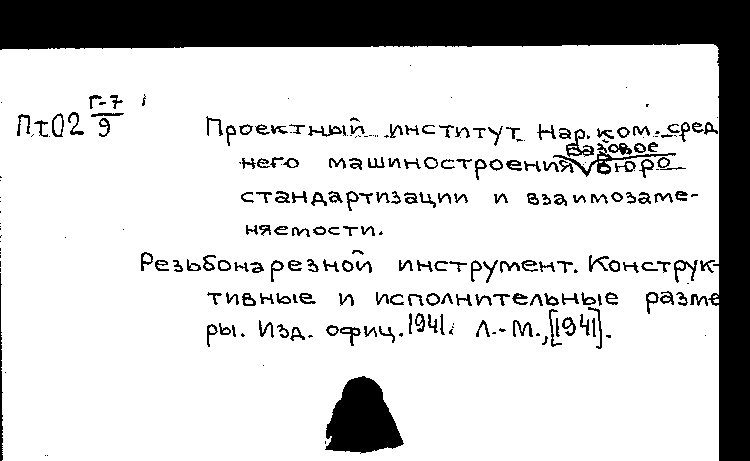 Пт02 Г-7/9
Проектный институт Нар. ком. сред
него машиностроения Базовое Бюро
стандартизации и взаимозаме-
няемости.
Резьбонарезной инструмент. Конструк-
тивные и исполнительные разме
ры. Изд. офиц. 1941. Л.-М., [1941].